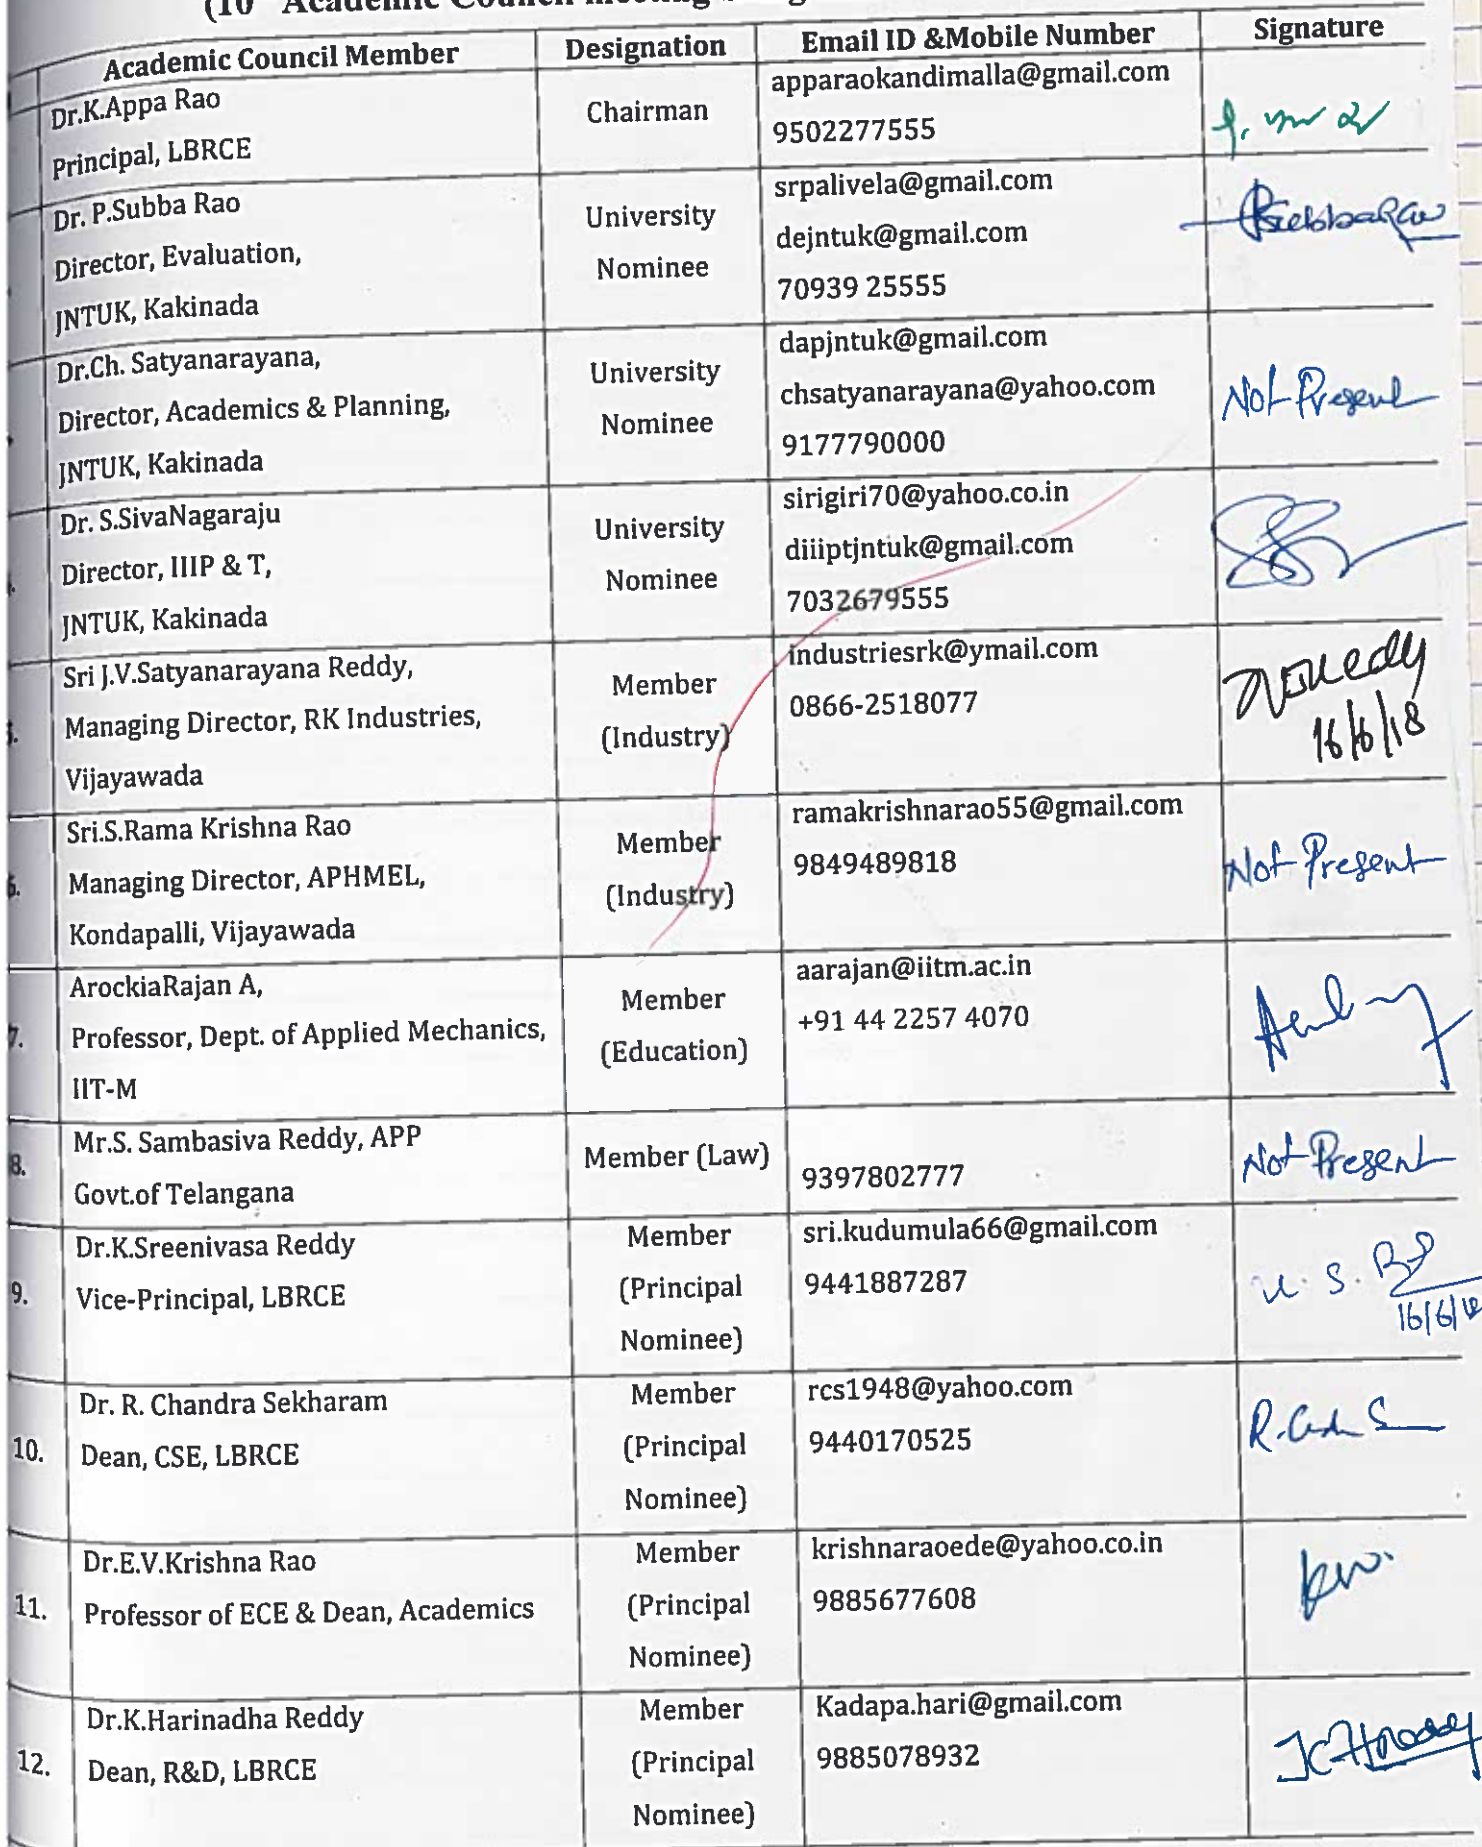 (10 Academic Council meeting
Academic Council Member Designation Email ID &Mobile Number Signature
Dr.K.Appa Rao
Principal, LBRCE
Chairman
apparaokandimalla@gmail.com
9502277555
Dr. P.Subba Rao
Director, Evaluation,
JNTUK, Kakinada
University
Nominee
srpalivela@gmail.com
dejntuk@gmail.com
70939 25555
PSubbaRao
Dr.Ch. Satyanarayana,
Director, Academics & Planning,
JNTUK, Kakinada
University
Nominee
dapjntuk@gmail.com
chsatyanarayana@yahoo.com
9177790000
Not Present
4.
Dr. S.SivaNagaraju
Director, IIIP & T,
JNTUK, Kakinada
University
Nominee
sirigiri70@yahoo.co.in
diiiptjntuk@gmail.com
7032679555
5.
Sri J.V.Satyanarayana Reddy,
Managing Director, RK Industries,
Vijayawada
Member
(Industry)
industriesrk@ymail.com
0866-2518077
16/6/18
6.
Sri.S.Rama Krishna Rao
Managing Director, APHMEL,
Kondapalli, Vijayawada
Member
(Industry)
ramakrishnarao55@gmail.com
9849489818
Not Present
7.
ArockiaRajan A,
Professor, Dept. of Applied Mechanics,
IIT-M
Member
(Education)
aarajan@iitm.ac.in
+91 44 2257 4070
8.
Mr.S. Sambasiva Reddy, APP
Govt.of Telangana
Member (Law)
9397802777
Not Present
9.
Dr.K.Sreenivasa Reddy
Vice-Principal, LBRCE
Member
(Principal
Nominee)
sri.kudumula66@gmail.com
9441887287
K. S.
16/6/18
10.
Dr. R. Chandra Sekharam
Dean, CSE, LBRCE
Member
(Principal
Nominee)
rcs1948@yahoo.com
9440170525
11.
Dr.E.V.Krishna Rao
Professor of ECE & Dean, Academics
Member
(Principal
Nominee)
krishnaraoede@yahoo.co.in
9885677608
12.
Dr.K.Harinadha Reddy
Dean, R&D, LBRCE
Member
(Principal
Nominee)
Kadapa.hari@gmail.com
9885078932